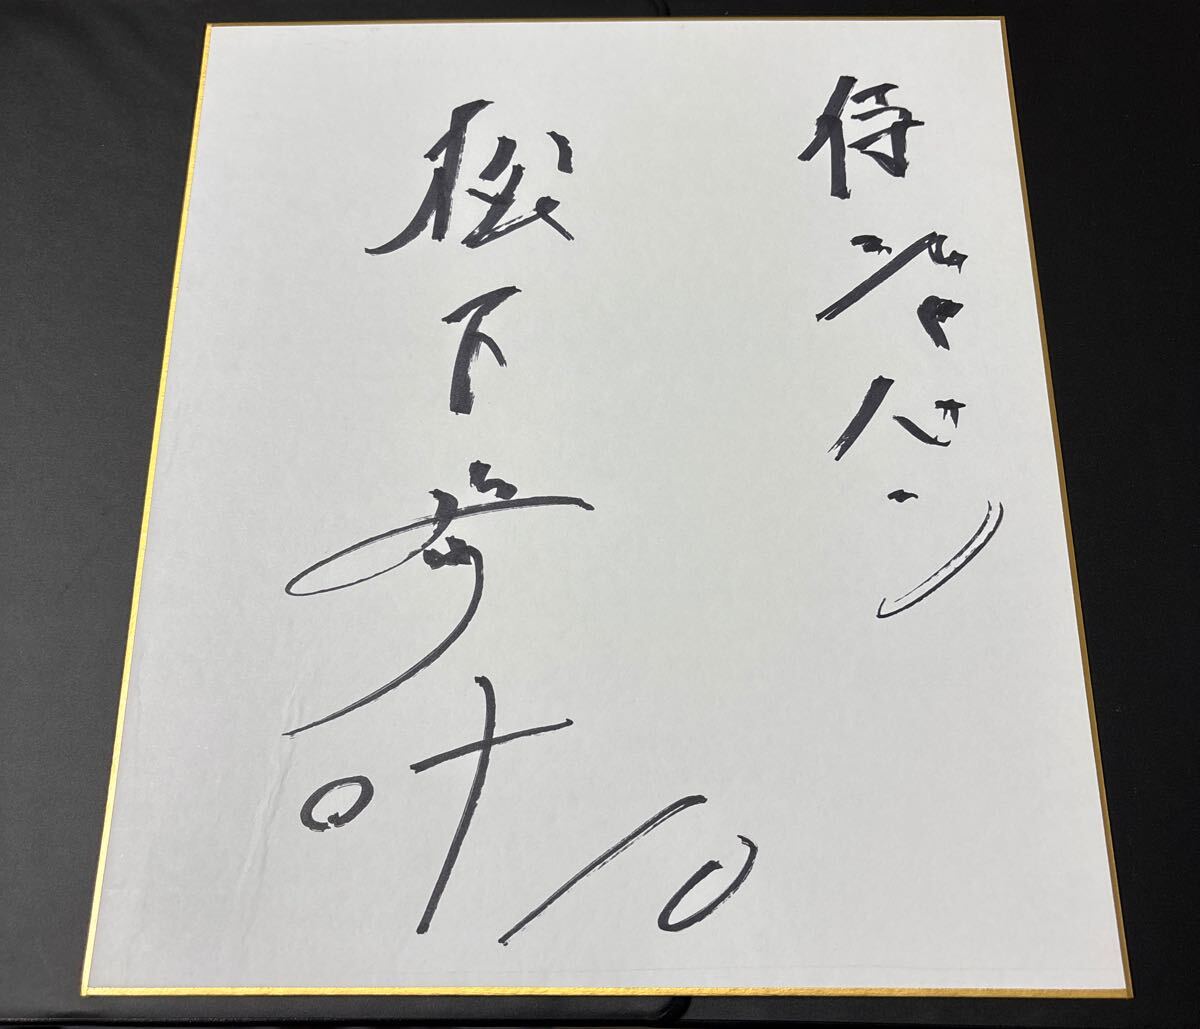 侍ジャパン
松下歩叶
10